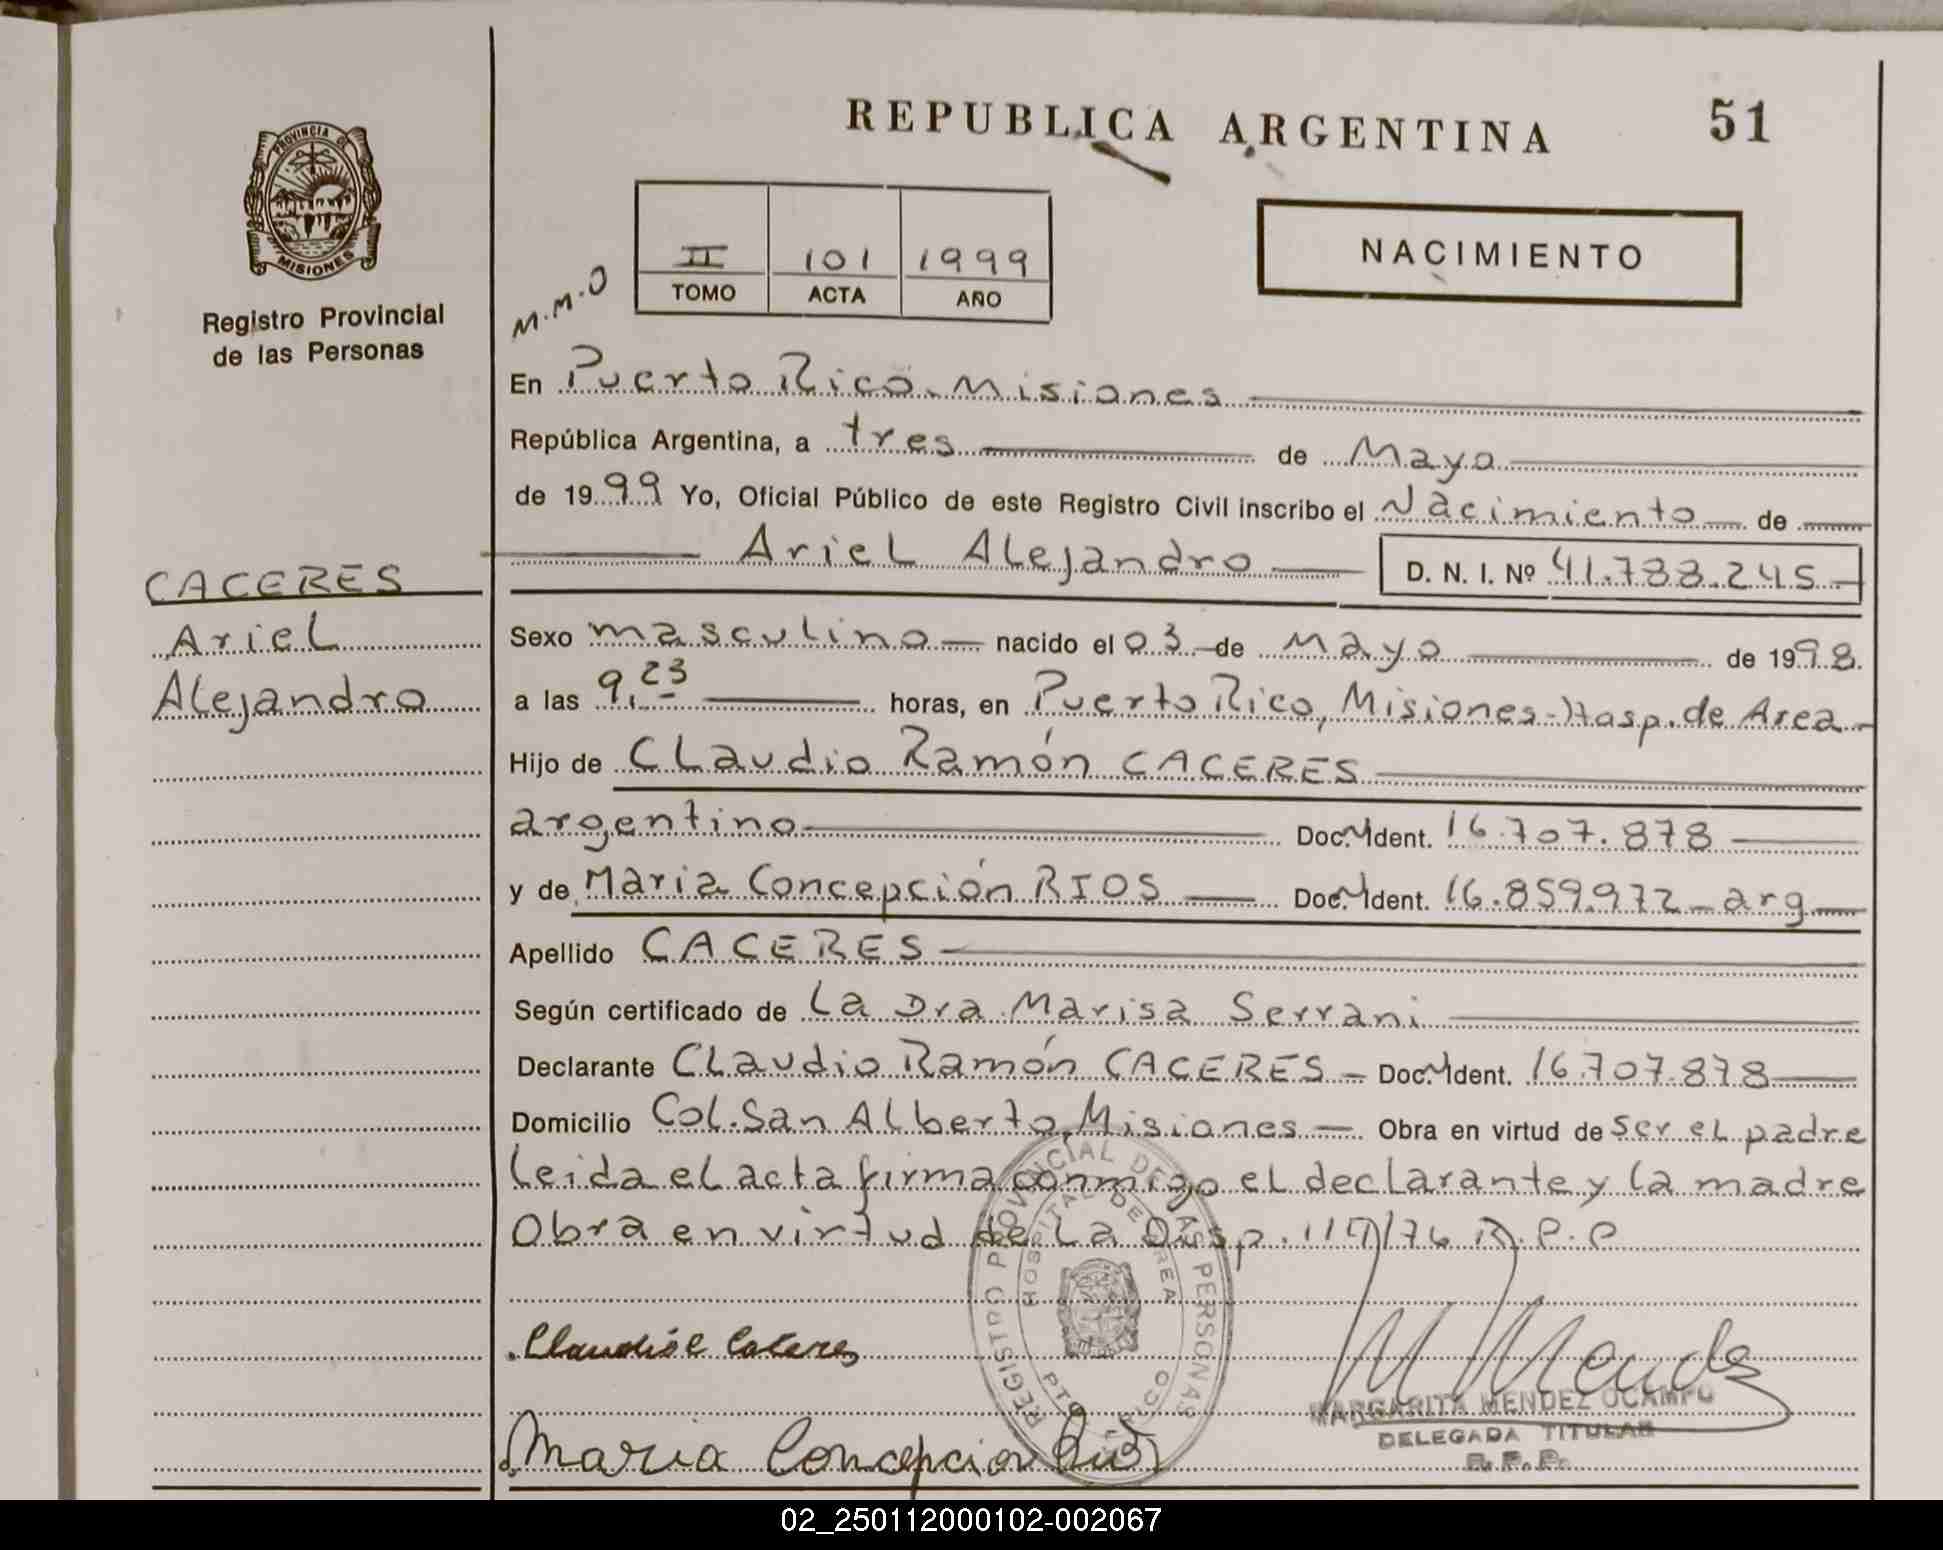 REPUBLICA ARGENTINA
51
PROVINCIA DE
MISIONES
Registro Provincial
de las Personas
M.M.O
II 101 1999
TOMO ACTA AÑO
NACIMIENTO
En Puerto Rico - Misiones
República Argentina, a tres de Mayo
de 1999 Yo, Oficial Público de este Registro Civil inscribo el Nacimiento de
Ariel Alejandro D. N. I. Nº 41.788.245
CACERES
Ariel
Alejandro
Sexo masculino nacido el 03 de Mayo de 1998.
a las 9,23 horas, en Puerto Rico, Misiones - Hosp. de Area
Hijo de Claudio Ramón CACERES
argentino Doc. M Ident. 16.707.878
y de Maria Concepción RIOS Doc. M Ident. 16.859.972 - arg
Apellido CACERES
Según certificado de La Dra Marisa Serrani
Declarante Claudio Ramón CACERES - Doc. M Ident. 16.707.878
Domicilio Col. San Alberto, Misiones - Obra en virtud de ser el padre
leida el acta firma conmigo el declarante y la madre
Obra en virtud de La Disp. 117/76 R.P.P
REGISTRO PROVINCIAL DE LAS PERSONAS
HOSPITAL DE AREA
PTO. RICO
Claudio R Caceres
Maria Concepcion Rios
M Mendez
MARGARITA MENDEZ OCAMPO
DELEGADA TITULAR
R. P. P.
02_250112000102-002067